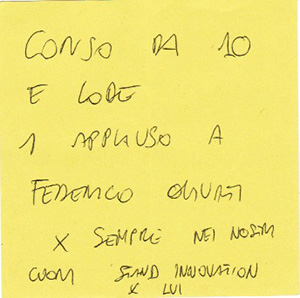 CORSO DA 10
E LODE
1 APPLAUSO A
FEDERICO
X SEMPRE NEI NOSTRI
CUORI STAND INNOVATION
X LUI